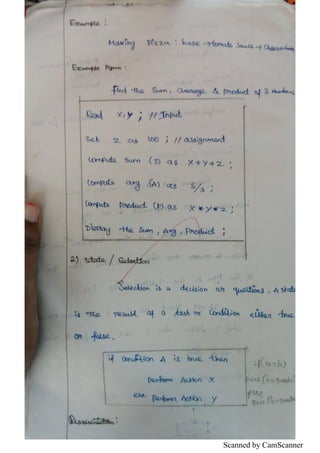 Example :
Making Pizza : base → tomato sauce →
Example Pgm :
find the Sum, average & product of 3 numbers
Read X, Y ; // Input
Set Z as 100 ; // assignment
Compute Sum (S) as X + Y + Z ;
Compute avg (A) as S/3 ;
Compute Product (P) as X * Y * Z ;
Display the Sum, Avg, Product ;
2) State / Selection
Selection is a decision or questions. A state
is the result of a test or condition either true
or false.
if condition A is true then
if (a>b)
perform Action X
else perform Action Y
else
Representation :
Scanned by CamScanner